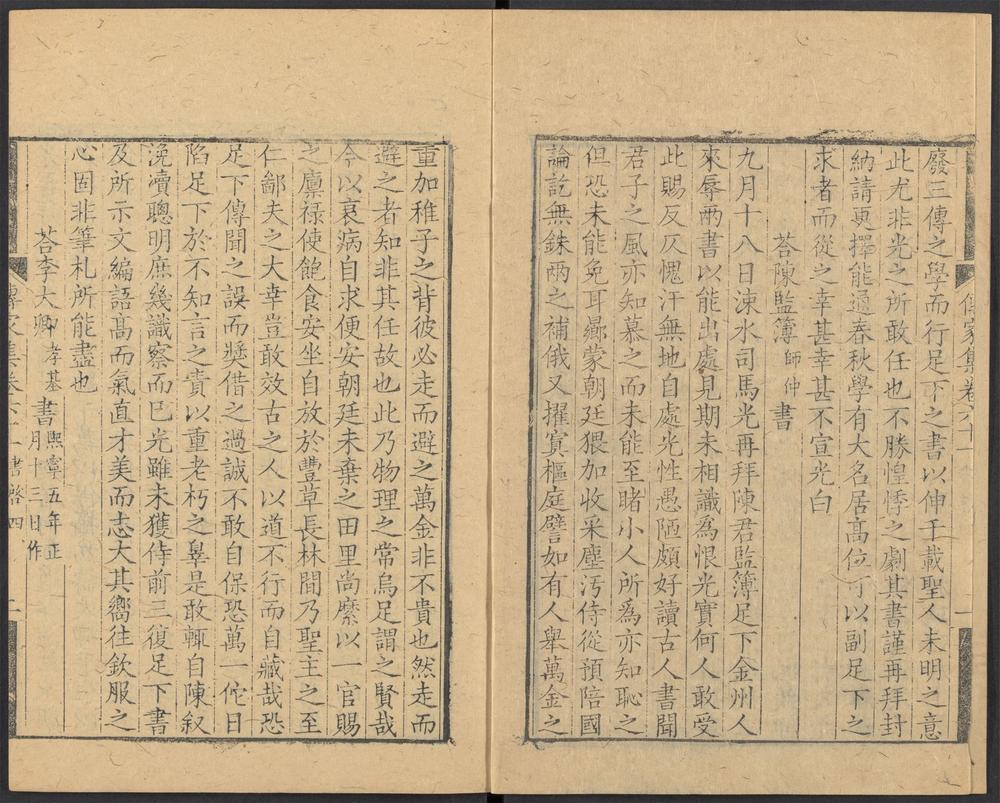 廢三傳之學而行足下之書以伸千載聖人未明之意
此尤非光之所敢任也不勝惶悸之劇其書謹再拜封
納請更擇能通春秋學有大名居髙位可以副足下之
求者而從之幸甚幸甚不宣光白
荅陳監簿師仲書
九月十八日涑水司馬光再拜陳君監簿足下金州人
來辱兩書以能出處見期未相識為恨光實何人敢受
此賜反仄愧汗無地自處光性愚陋頗好讀古人書聞
君子之風亦知慕之而未能至睹小人所為亦知恥之
但恐未能免耳曏蒙朝廷猥加收采塵汚侍從預陪國
論訖無銖兩之補俄又擢寘樞庭譬如有人舉萬金之
傳家集卷六十一
一
重加稚子之背彼必走而避之萬金非不貴也然走而
避之者知非其任故也此乃物理之常烏足謂之賢哉
今以衰病自求便安朝廷未棄之田里尚縻以一官賜
之廩禄使飽食安坐自放於豐草長林間乃聖主之至
仁鄙夫之大幸豈敢效古之人以道不行而自藏哉恐
足下傳聞之誤而奬借之過誠不敢自保恐萬一佗日
陷足下於不知言之責以重老朽之辠是敢輒自陳叙
浼瀆聰明庶幾識察而已光雖未獲侍前三復足下書
及所示文編語髙而氣直才美而志大其嚮往欽服之
心固非筆札所能盡也
荅李大卿孝基書熙寧五年正月十三日作
傳家集卷六十一 書啓四